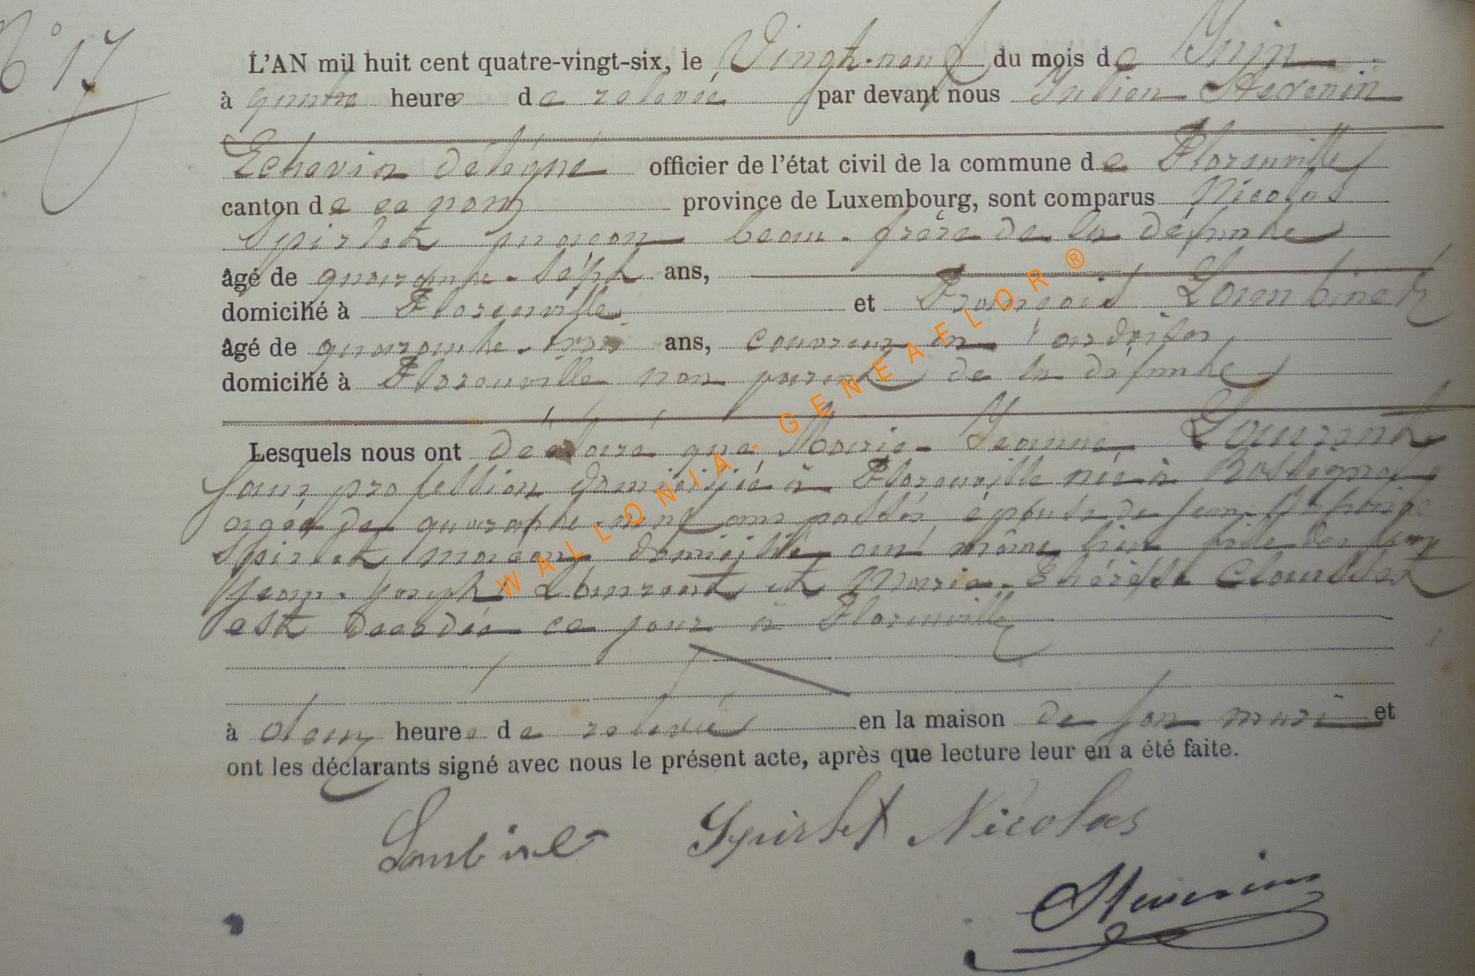 N° 17
L'AN mil huit cent quatre-vingt-six, le Vingt-neuf du mois de Juin
à quatre heures de relevée par devant nous Julien Stevenin
Echevin délégué officier de l'état civil de la commune de Florenville
canton de ce nom province de Luxembourg, sont comparus Nicolas
Spirlet maçon beau-frère de la défunte
âgé de quarante-sept ans,
domicilié à Florenville et François Lambinet
âgé de quarante-trois ans, couvreur en ardoises
domicilié à Florenville non parent de la défunte
Lesquels nous ont déclaré que Marie-Jeanne Laurent
sans profession domiciliée à Florenville née à Rossignol
âgée de quarante-neuf ans passés, épouse de Jean-Baptiste
Spirlet maçon domicilié au même lieu fille des feus
Jean-Joseph Laurent et Marie-Thérèse
est décédée ce jour à Florenville
à deux heures de relevée en la maison de son mari et
ont les déclarants signé avec nous le présent acte, après que lecture leur en a été faite.
Lambinet Spirlet Nicolas
Stevenin
WALLONIA-GENEAFLOR ®